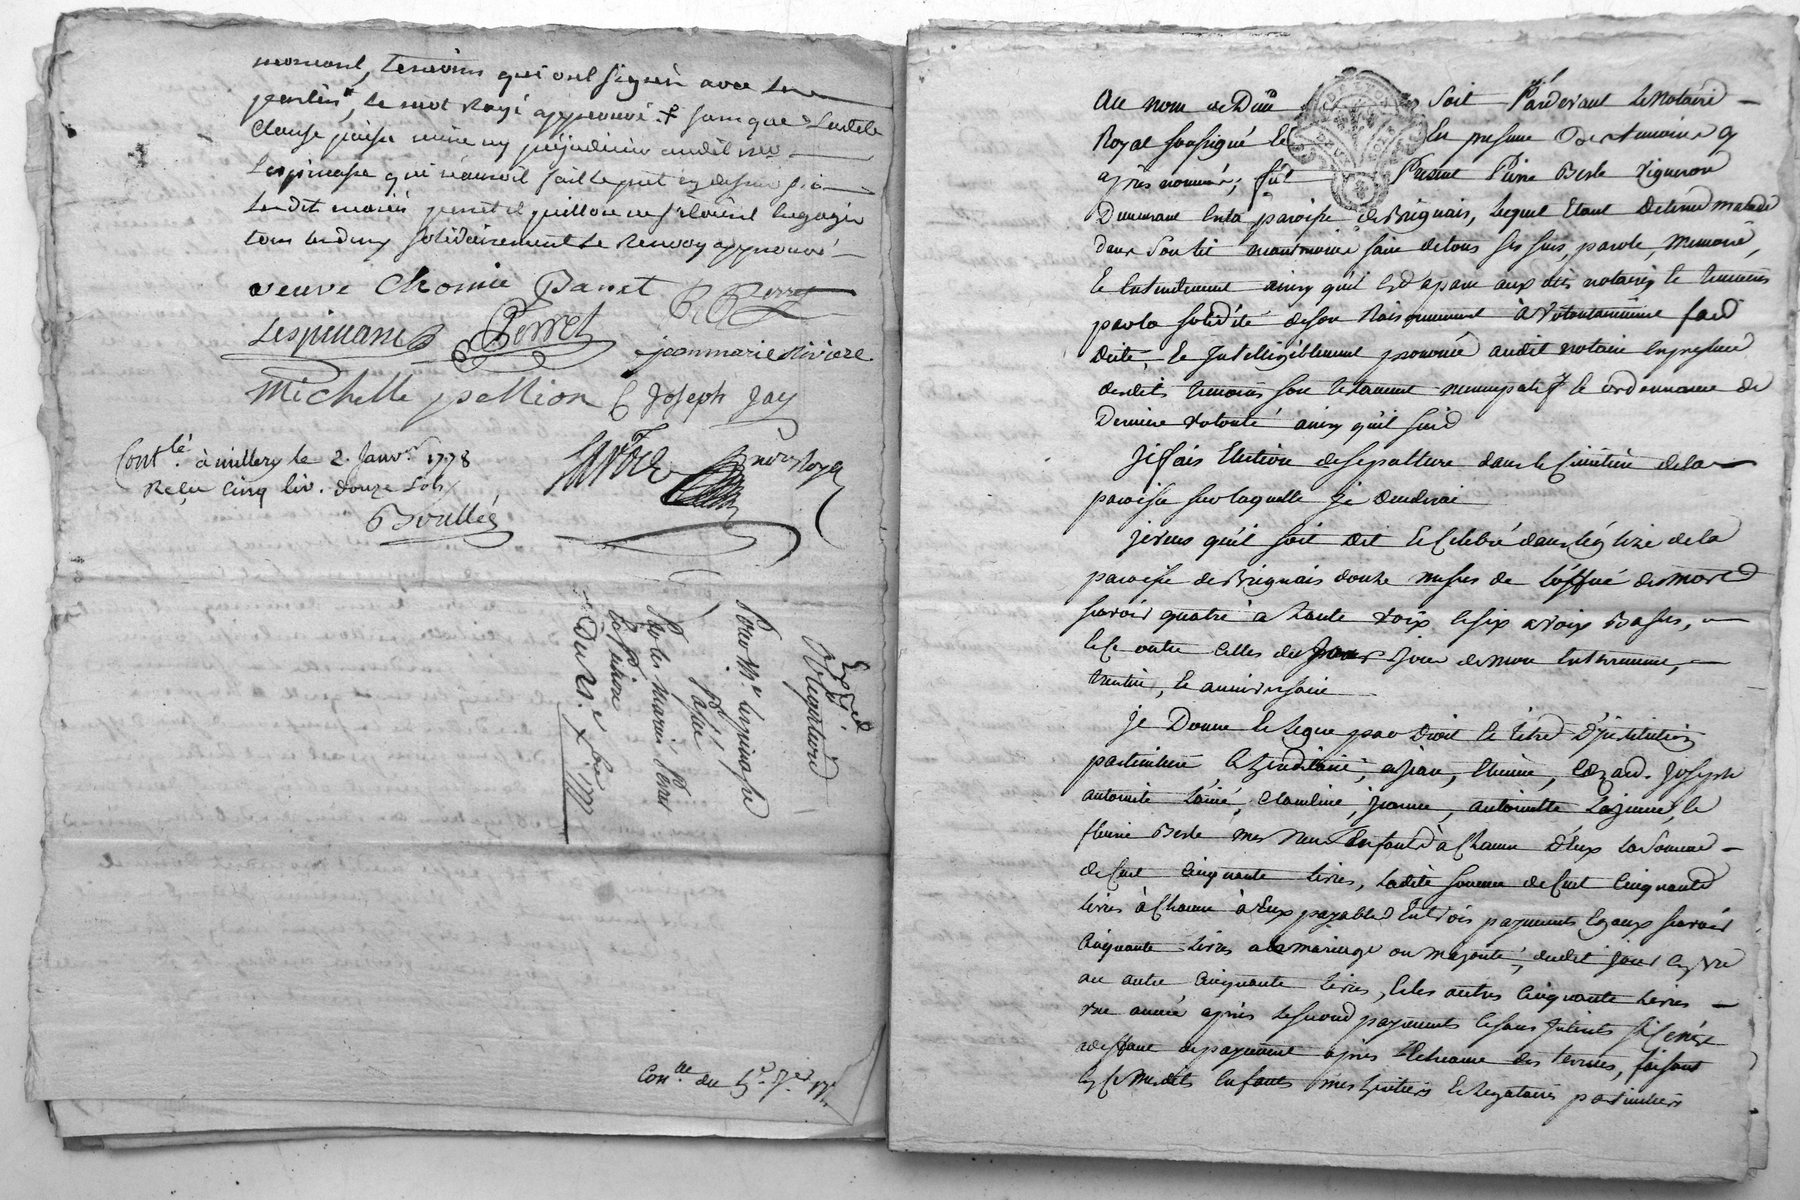 moment, temoins qui ont signés avec les
parties, le mot rayé approuvé. + sans que ladite
clause puisse nuire ny prejudicier audit sr
Lespinasse qui n'auroit fait le pret cy dessus si
lesdits mariés perret et se feussent engagés
tous les deux solidairement le renvoy approuvé
veuve Chomie Panet B Perret
Lespinasse Perret jeanmarie Riviere
Michelle pellion C Joseph Jay
Contlé à millery le 2. Janvr 1778
Reçu cinq liv. douze sols
Boullés
Expéd
Obligation
Pour Mr Lespinasse
Passée
Par les mariés Perret
Du 21e xbre 1777
Conlle du 5e
Au nom de Dieu Soit Pardevant le Notaire
Royal soussigné et En presence des temoins cy
après nommés, fut Present Pierre Besle Vigneron
Demeurant en la paroisse de Brignais, lequel Etant Detenu malade
dans son lit neantmoins sain de tous ses sens, parole, memoire,
et entendement ainsy qu'il est aparu aux dits notaire et temoins
par la solidité de son raisonnement a volontairement fait
Dicté et Intelligiblement prononcé audit notaire en presence
desdits temoins son testament nuncupatif et ordonnance de
Derniere volonté ainsy qu'il suit
Je fais Election de sepulture dans le Cimetiere de la
paroisse sur laquelle je decederai
je veus qu'il soit dit et Celebré dans l'églize de la
paroisse de Brignais douze messes de l'office des morts
savoir quatre a haute voix et six a voix Basses,
et ce outre celles du jour de mon enterrement,
trentin, et anniversaire
Je Donne et legue par Droit et titre D'institution
particuliere et hereditaire, a jean, Etienne, Joseph
antoinette L'ainé, Claudine, jeanne, antoinette la jeune, et
Besle mes neuf Enfants à Chacun D'eux la somme
de Cent Cinquante livres, ladite somme de Cent Cinquante
livres à Chacun d'eux payable En trois payements Egaux savoir
Cinquante livres a leur mariage ou majorité, dudit jour en un
an autre Cinquante livres, et les autres Cinquante livres
une année après le second payement et sans Interets si ce n'est
a deffaut de payement après l'Echeance des termes, faisant
en ce mesdits Enfants mes heritiers et legataires particuliers